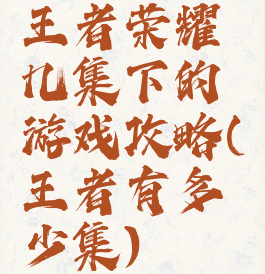 王者荣耀
九集下的
游戏攻略(
王者有多
少集)